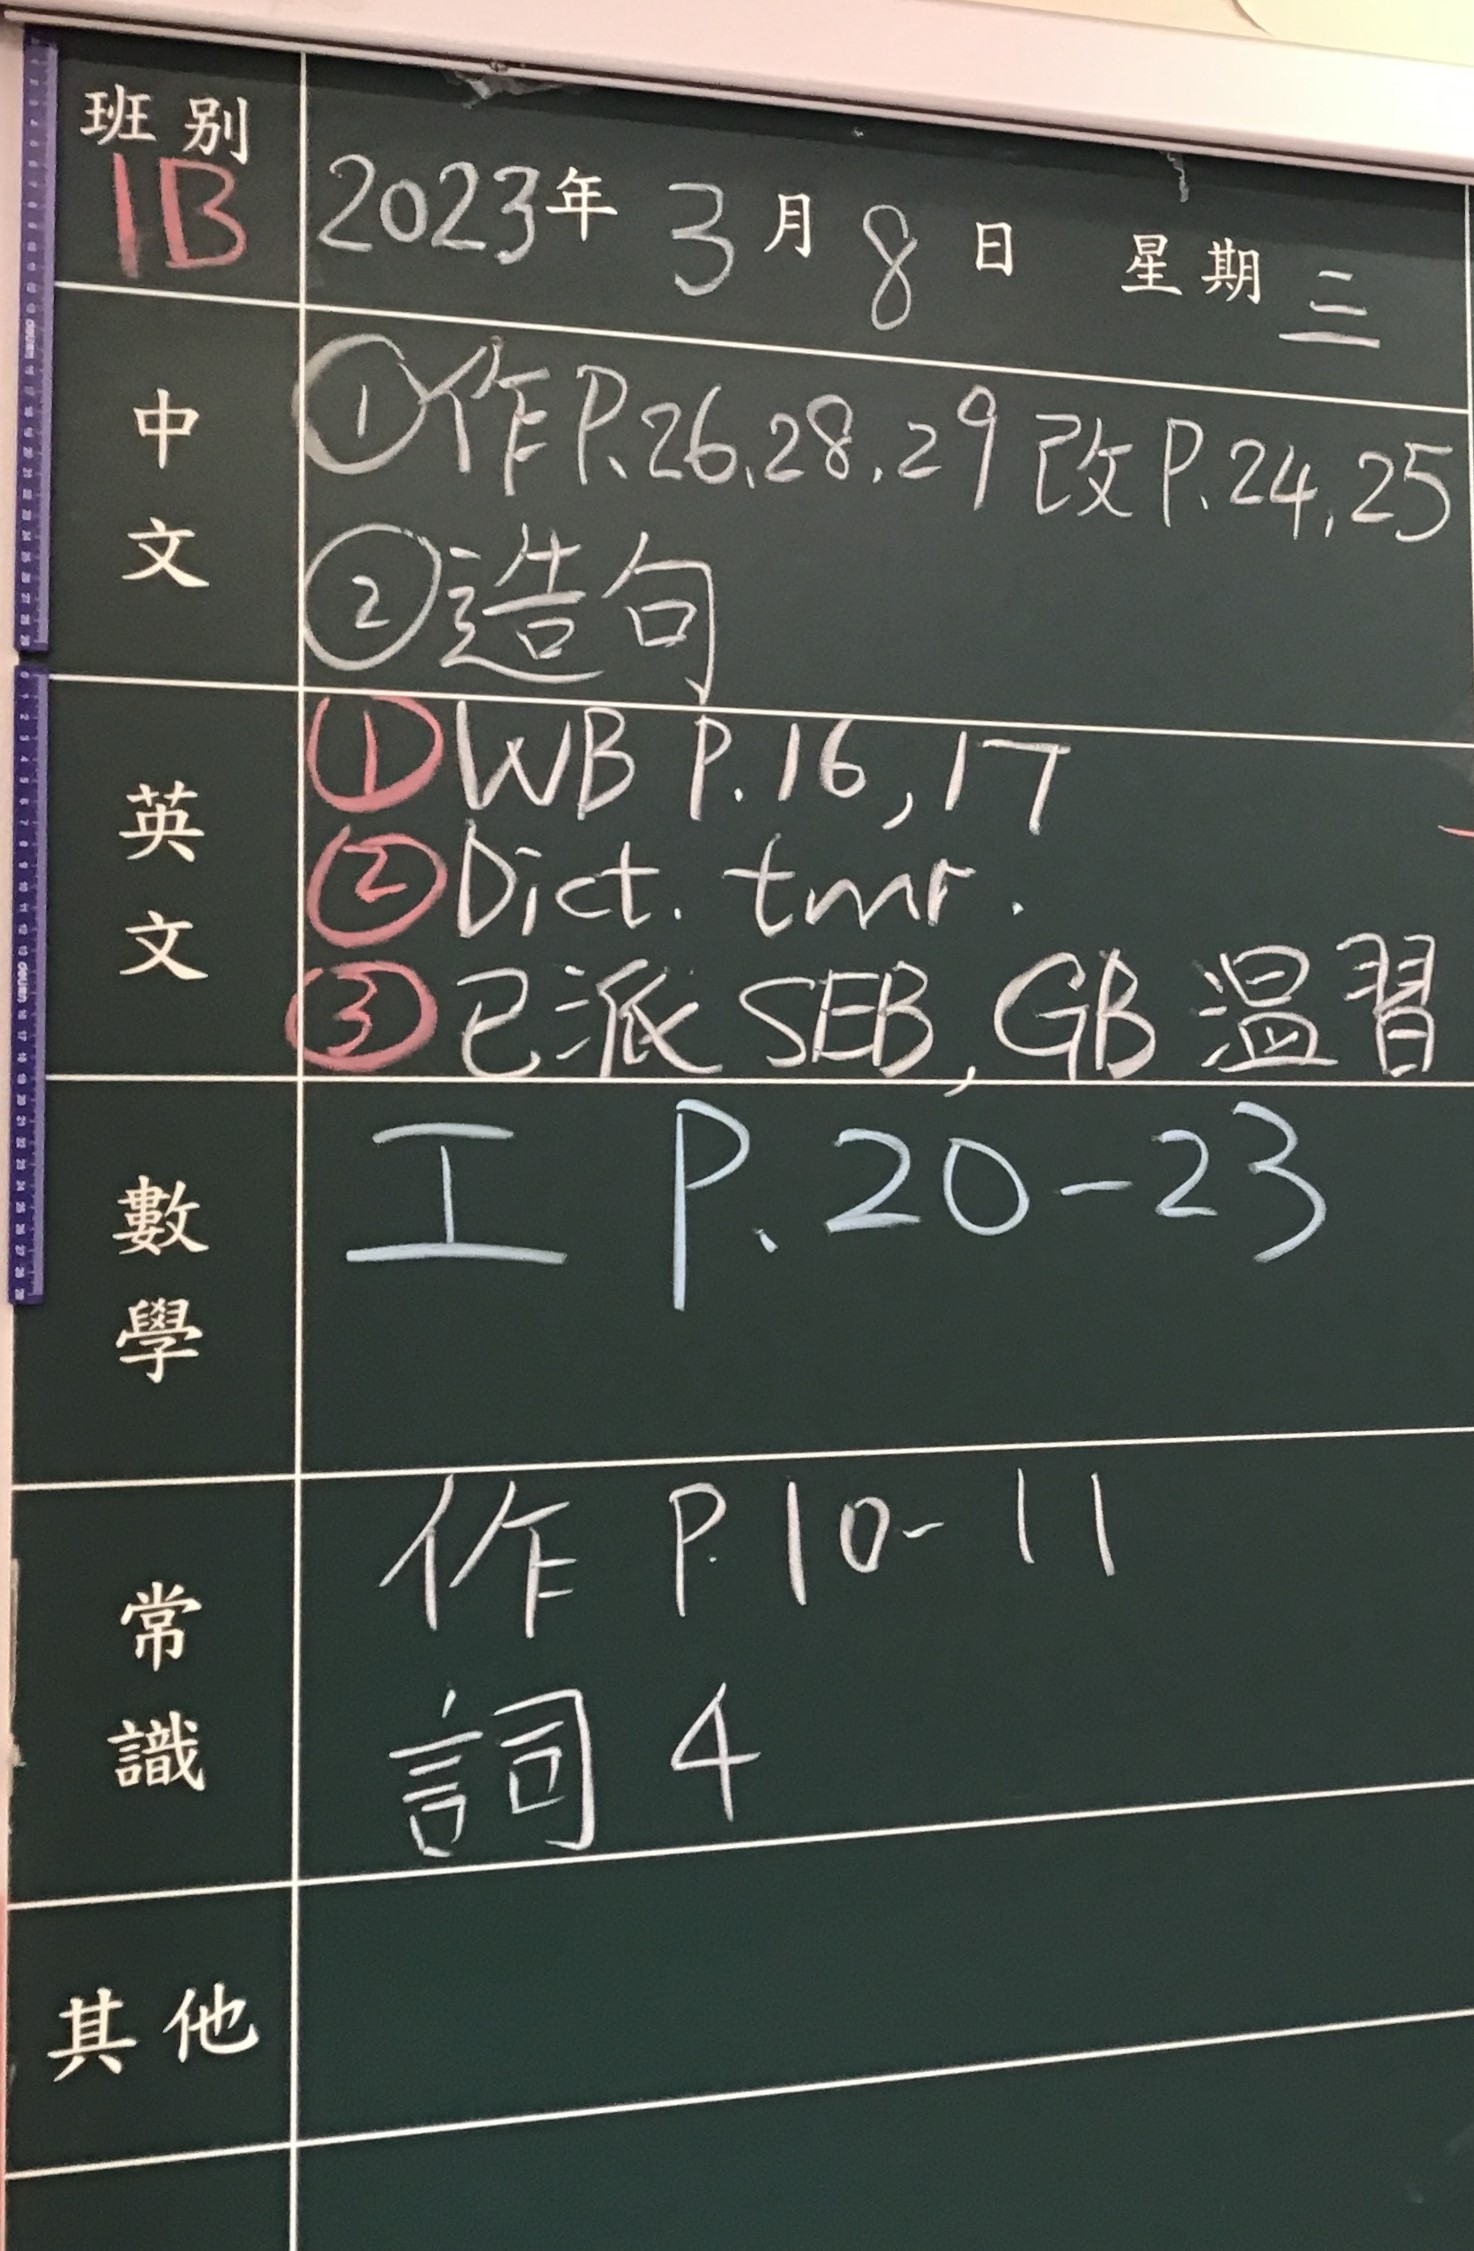 班別
1B
2023年 3月 8日 星期三
中文
①作P.26,28,29 改P.24,25
②造句
英文
①WB P.16,17
②Dict. tmr.
③已派 SEB, GB 溫習
數學
工 P.20-23
常識
作 P.10-11
詞 4
其他